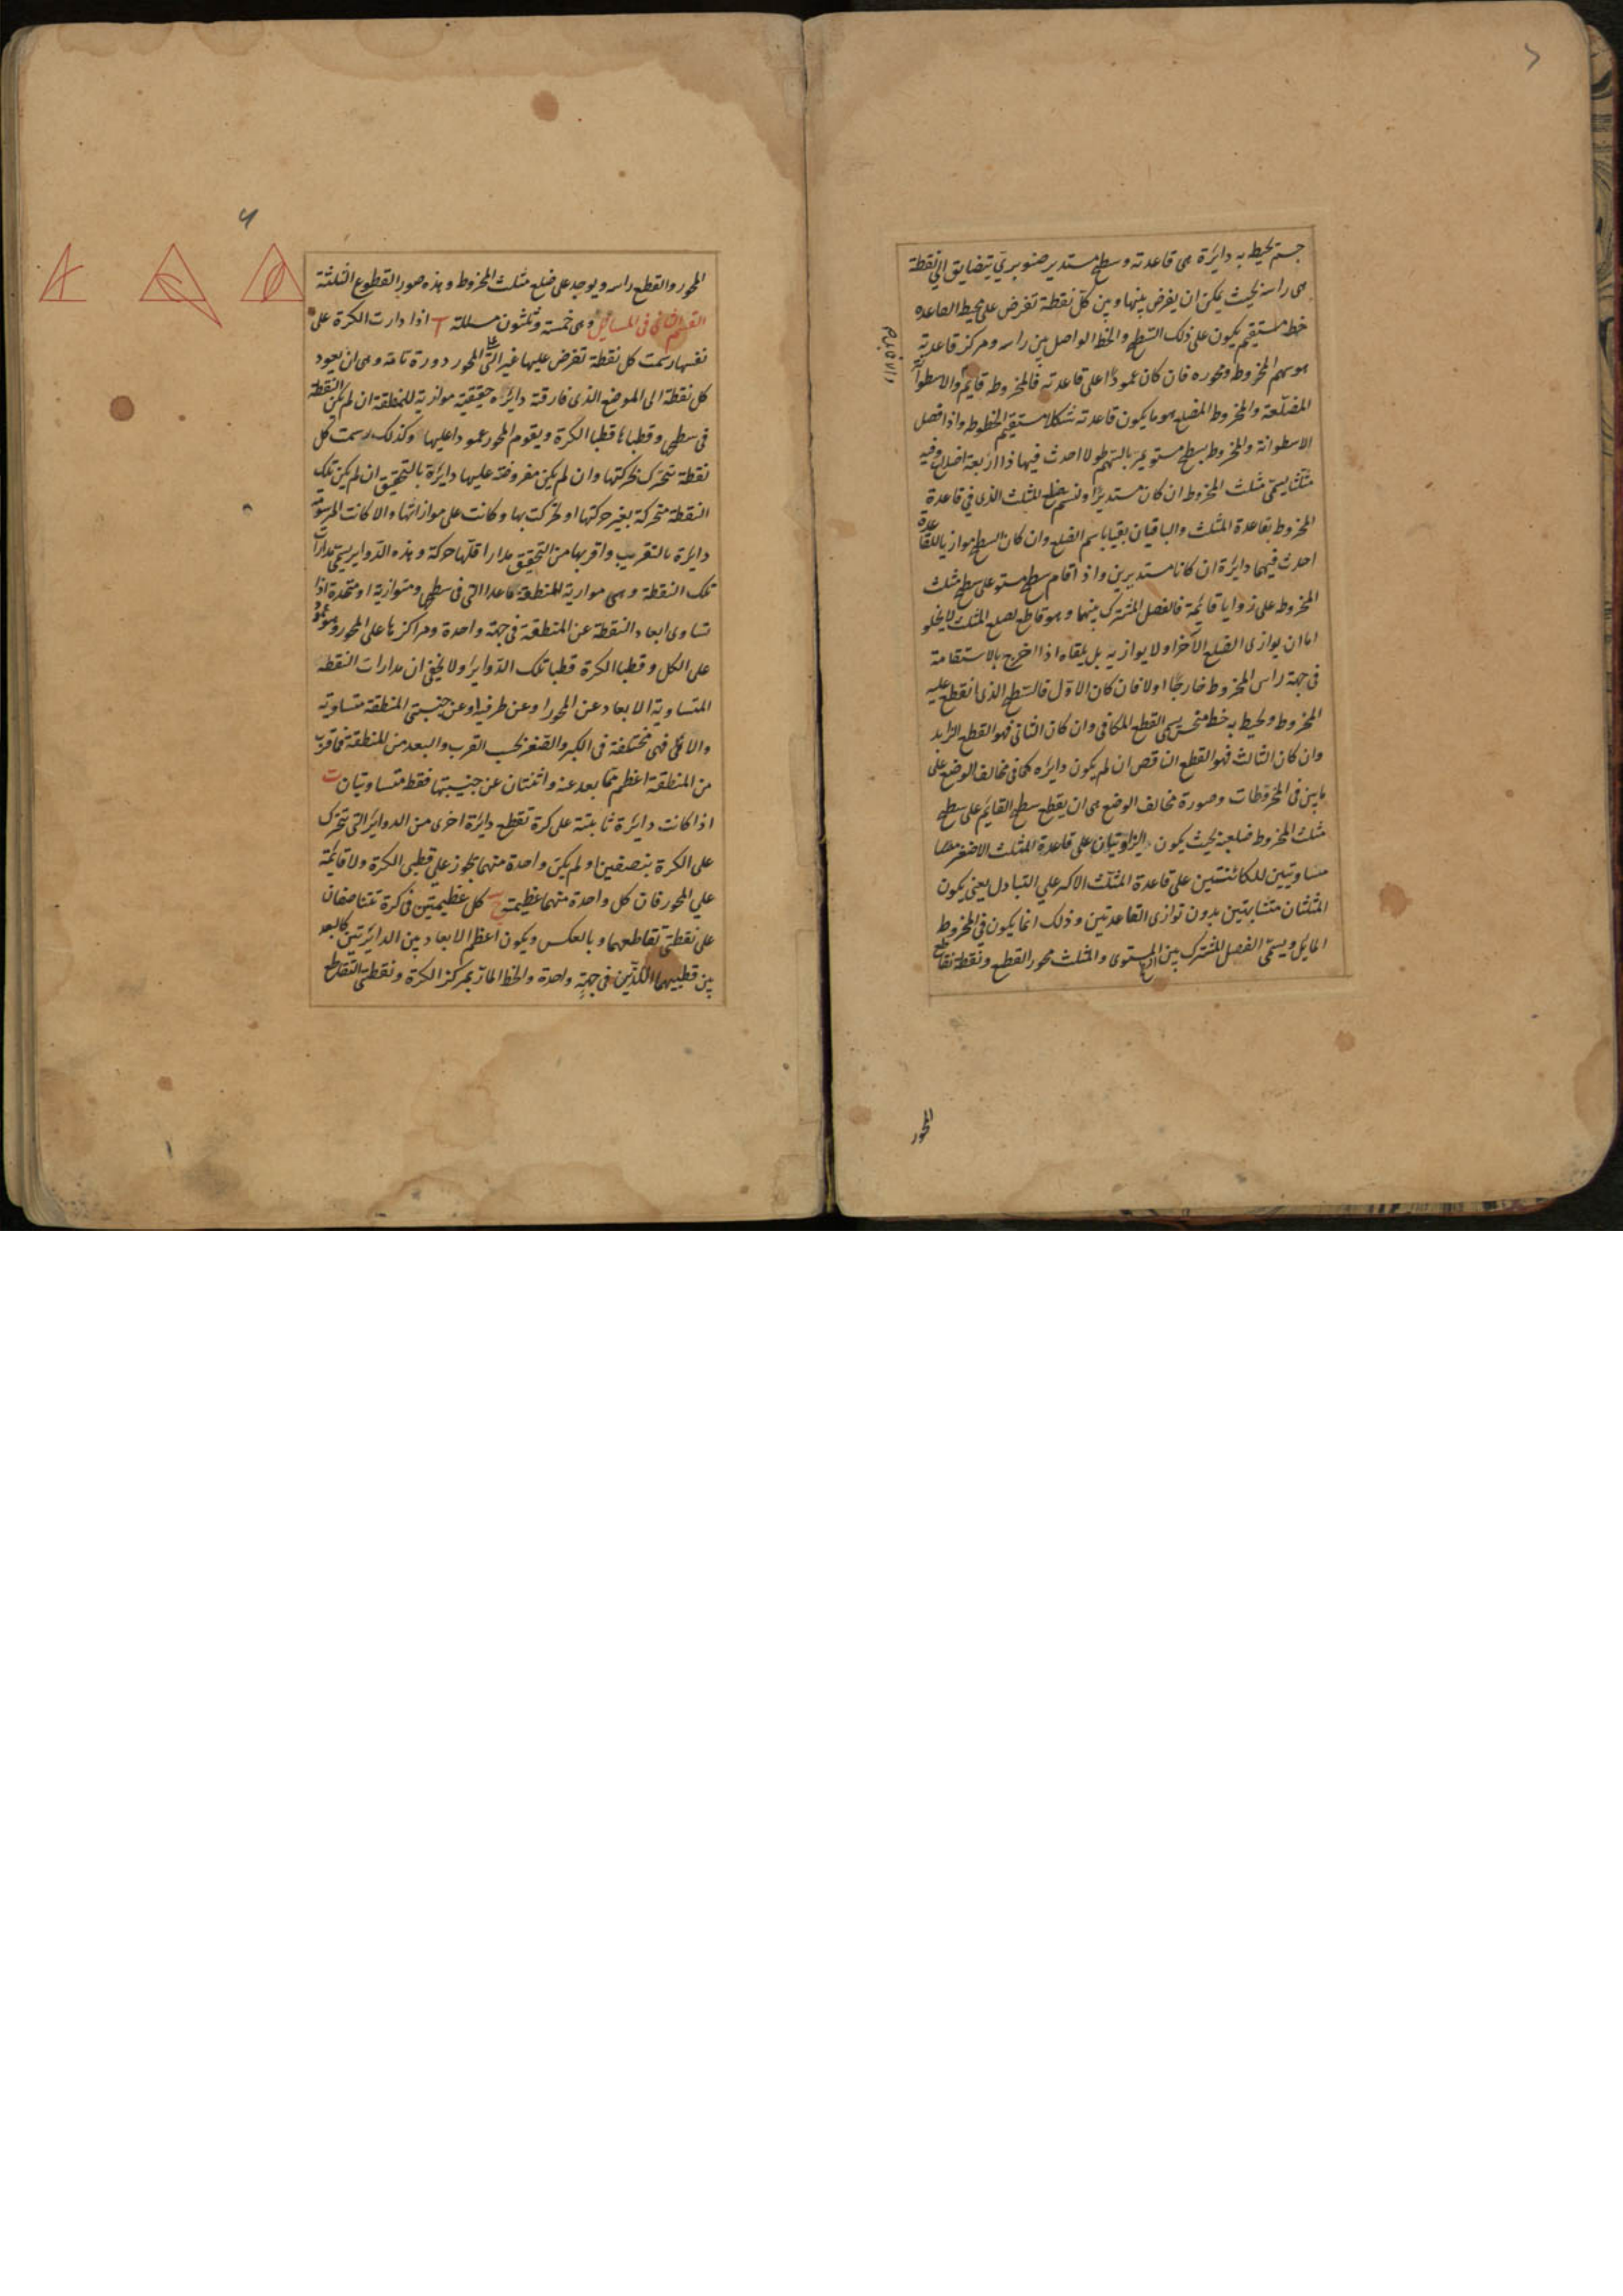 جسم يحيط به دائرة هى قاعدته وسطح مستدير صنوبرى يتضايق الى نقطة
هى راسه بحيث يمكن ان يفرض بينها وبين كل نقطة تفرض على محيط القاعده
خط مستقيم يكون على ذلك السطح والخط الواصل بين راسه ومركز قاعدته
هو سهم المخروط ومحوره فان كان عمودًا على قاعدته فالمخروط قايم والاسطوانة
المضلّعة والمخروط المضلع هو ما يكون قاعدته شكلا مستقيم الخطوط واذا فصل
الاسطوانة والمخروط بسطح مستو يمر بالسهم طولا احدث فيها ذا اربعة اضلاع وفيه
مثلثا يسمى مثلث المخروط ان كان مستديرًا ونسم ضلع المثلث الذى فى قاعدة
المخروط بقاعدة المثلث والباقيان بقيا باسم الضلع وان كان السطح موازيا للقاعدة
احدث فيهما دايرة ان كانا مستديرين واذا قام سطح مستو على سطح مثلث
المخروط على زوايا قايمة فالفصل المشترك بينهما وهو قاطع لضلع المثلث لا يخلو
اما ان يوازى الضلع الآخر او لا يوازيه بل يلقاه اذا اخرج بالاستقامة
فى جهة راس المخروط خارجًا او لا فان كان الاوّل فالسّطح الذى انقطع عليه
المخروط ويحيط به خط منحن يسمى القطع المكافى وان كان الثانى فهو القطع الزايد
وان كان الثالث فهو القطع الناقص ان لم يكون دايره كما فى مخالف الوضع على
ما بين فى المخروطات وصورة مخالف الوضع هى ان يقطع سطح القايم على سطح
مثلث المخروط ضلعيه بحيث يكون الزاويتان على قاعدة المثلث الاصغر منهما
متساويتين للكائنتين على قاعدة المثلث الاكبر على التبادل يعنى يكون
المثلثان متشابهتين بدون توازى القاعدتين وذلك انما يكون فى المخروط
المايل ويسمّى الفصل المشترك بين المستوى والمثلث محور القطع ونقطة تقاطع
المحور
المحور والقطع راسه ويوجد على ضلع مثلث المخروط وهذه صور القطوع الثلثة
القسم الثانى فى المسائل وهى خمسة وثلثون مسئلة ا اذا دارت الكرة على
نفسها رسمت كل نقطة تفرض عليها غير التى على المحور دورة تامة وهى ان يعود
كل نقطة الى الموضع الذى فارقته دائرة حقيقية موازية للمنطقة ان لم يكن النقطة
فى سطحها وقطباها قطبا الكرة ويقوم المحور عمودا عليها وكذلك رسمت كل
نقطة تتحرك بحركتها وان لم يكن مفروضة عليها دايرة بالتحقيق ان لم يكن تلك
النقطة متحركة بغير حركتها او تحركت بها وكانت على موازاتها والا كانت المرسومة
دايرة بالتقريب واقربها من التحقيق مدارا اقلها حركة وهذه الدّواير يسمى مدارات
تلك النقطة وهى موازية للمنطقة ما عدا التى فى سطحها ومتوازية او متحدة اذا
تساوى ابعاد النقطة عن المنطقة فى جهة واحدة ومراكزها على المحور وهو عمود
على الكل وقطبا الكرة قطبا تلك الدّواير ولا يخفى ان مدارات النقطة
المتساوية الابعاد عن المحور او عن طرفيه او عن جنبتى المنطقة متساوية
والا فهى مختلفة فى الكبر والصّغر بحسب القرب والبعد من المنطقة فما قرب
من المنطقة اعظم مما بعد عنه واثنتان عن جنبيتها فقط متساويتان ب
اذا كانت دائرة ثابتة على كرة تقطع دايرة اخرى من الدوائر التى تتحرك
على الكرة بنصفين ولم يكن واحدة منهما تجوز على قطبى الكرة ولا قايمة
على المحور فان كل واحدة منهما عظيمة ج كل عظيمتين فى كرة تتناصفان
على نقطتى تقاطعهما وبالعكس ويكون اعظم الابعاد بين الدائرتين كالبعد
بين قطبيهما اللذين فى جهةٍ واحدة والخط المارّ بمركز الكرة ونقطتى التقاطع